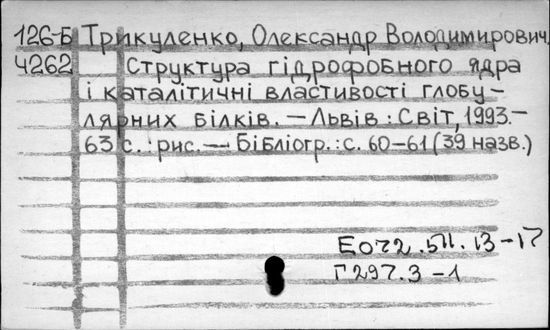 126-Б Трикуленко, Олександр Володимирович
4262 Структура гідрофобного ядра
і каталітичні властивості глобу-
лярних білків. – Львів : Світ, 1993.-
63 с. : рис. — Бібліогр. : с. 60-61 (39 назв.)
Е072.511.13-17
Г297.3-1